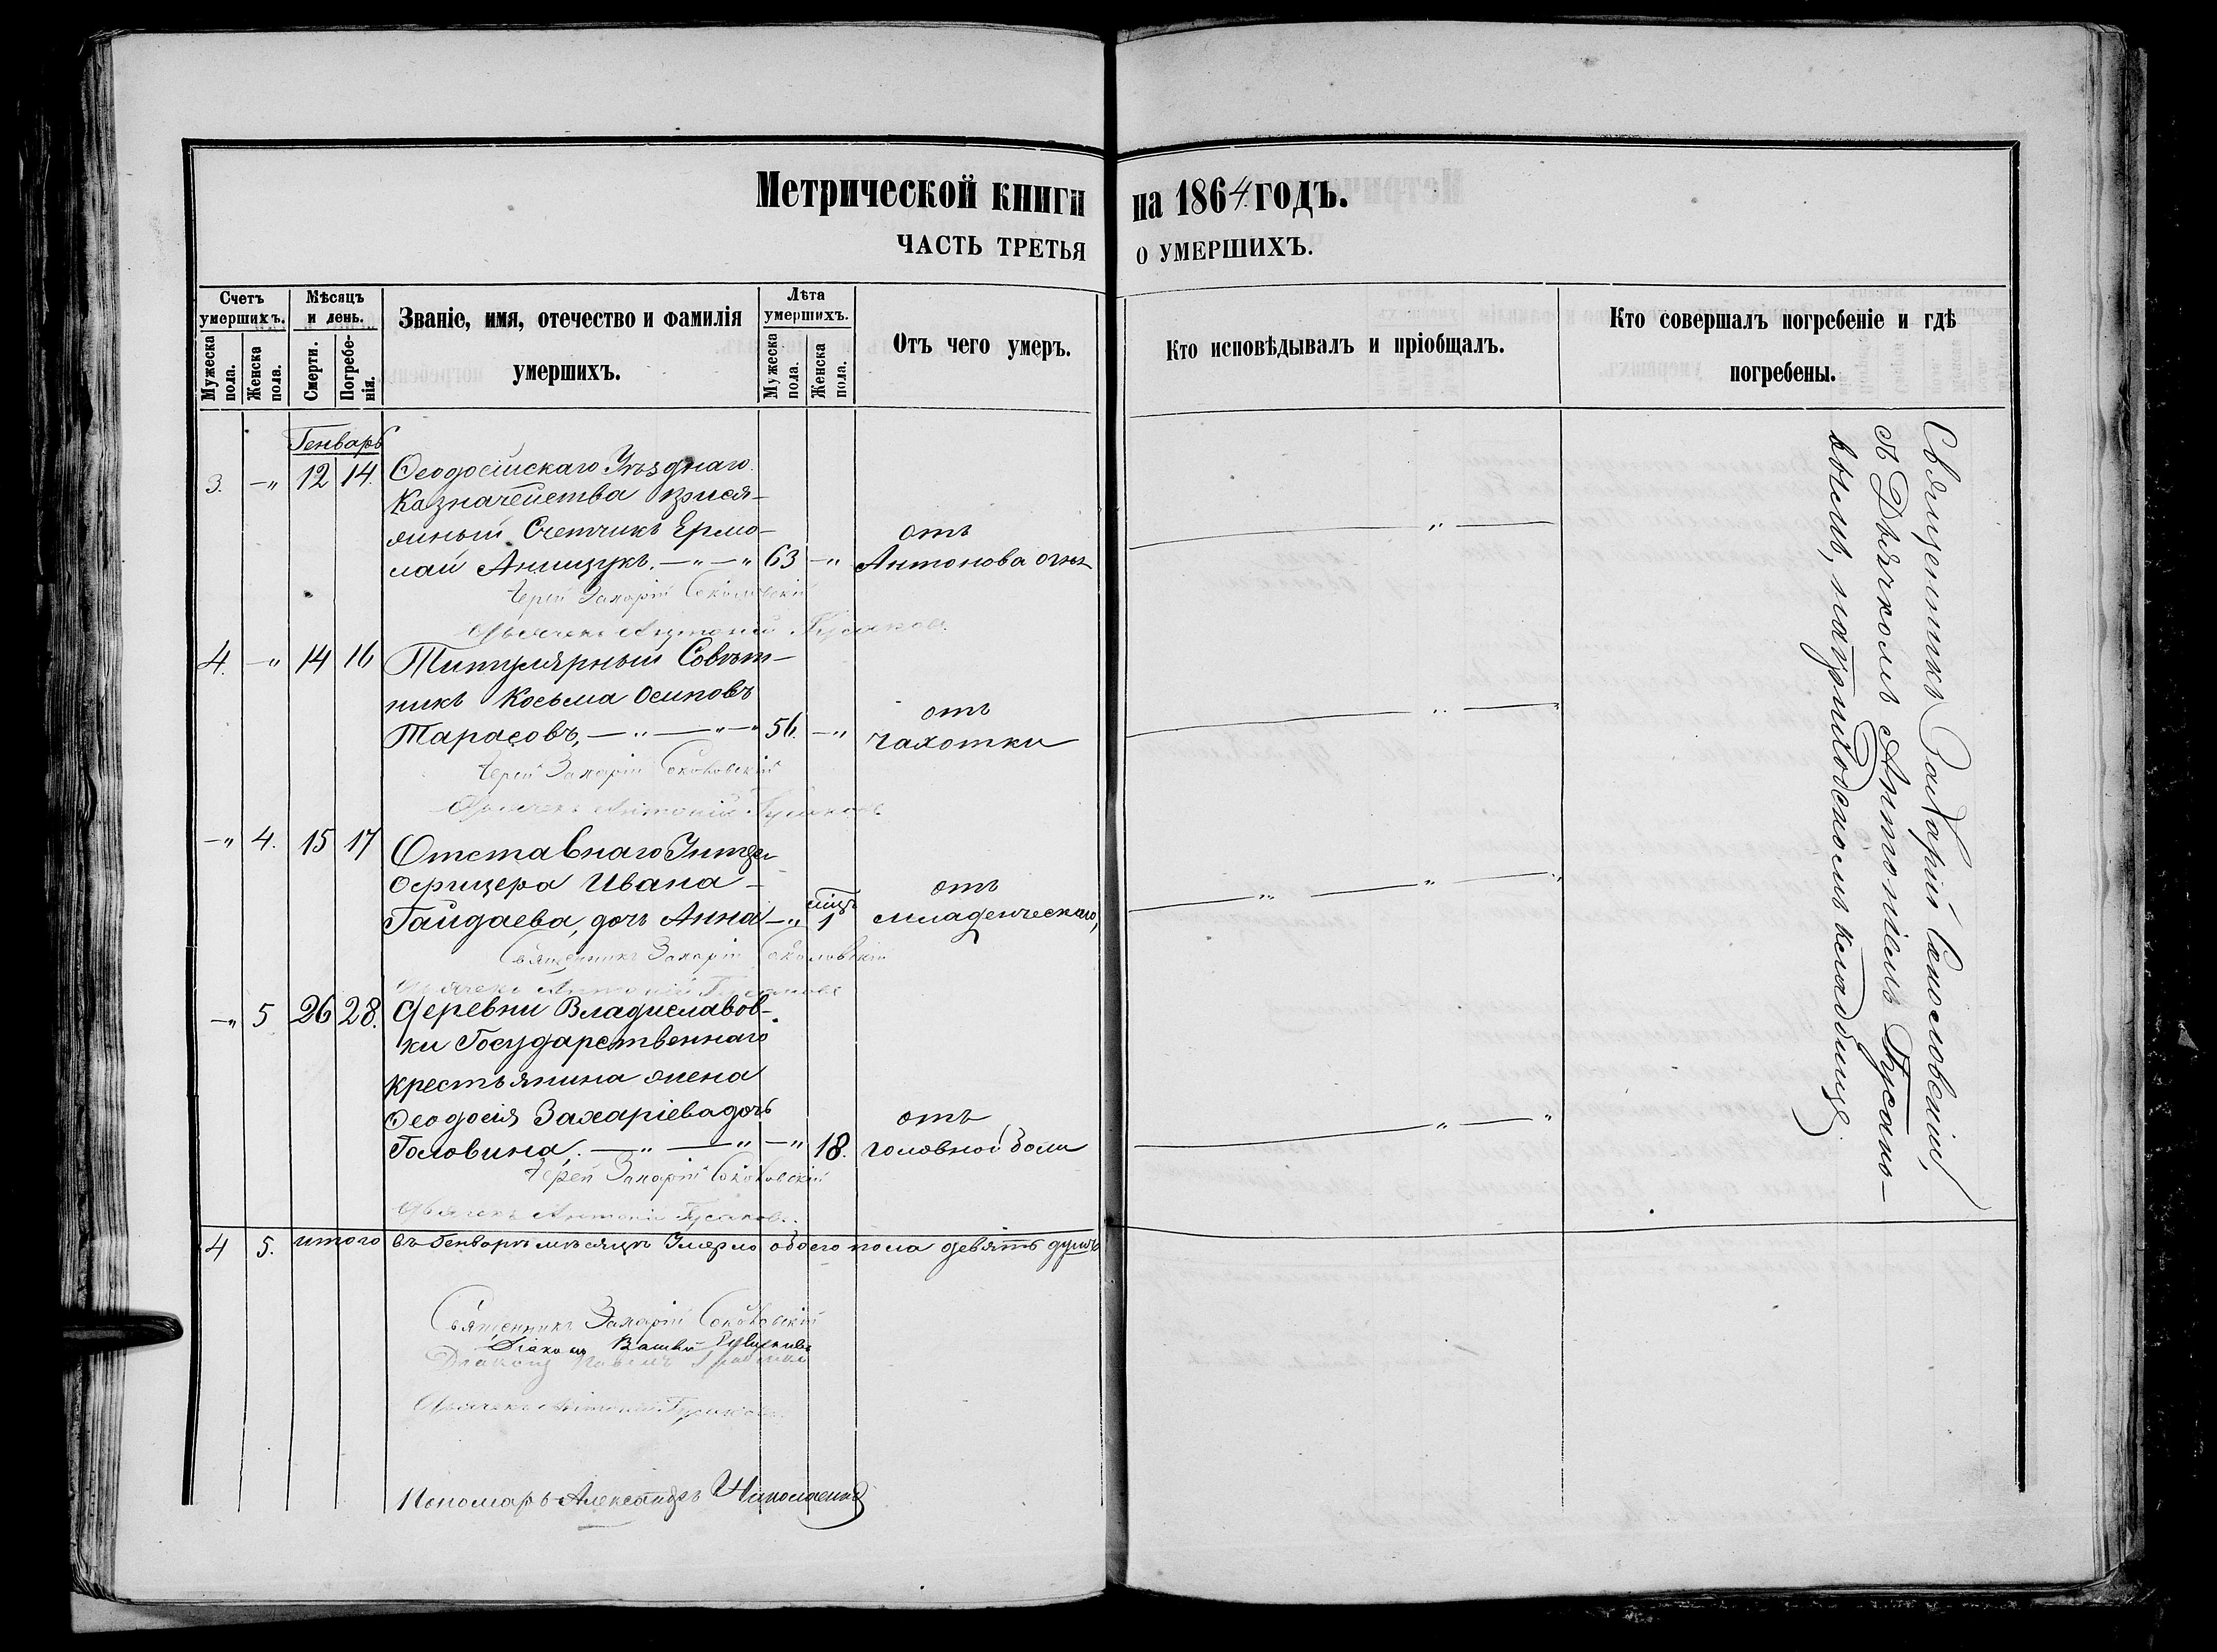 Метрической книги на 1864 годъ.
ЧАСТЬ ТРЕТЬЯ О УМЕРШИХЪ.
Счетъ умершихъ.
Мужеска пола.
Женска пола.
Мѣсяцъ и день.
Смерти.
Погребенія.
Званіе, имя, отечество и фамилія умершихъ.
Лѣта умершихъ.
Мужеска пола.
Женска пола.
Отъ чего умеръ.
Кто исповѣдывалъ и пріобщалъ.
Кто совершалъ погребеніе и гдѣ погребены.
Генварь
3. —„ 12 14. Ѳеодосійскаго Уѣзднаго
Казначейства прися-
жный Счетчикъ Ермо-
лай Анищукъ. —„—„ 63 —„ отъ Антонова огня
Іерей Захарій Соколовскій
Дьячекъ Антоній Гусаковъ
4. —„ 14 16 Титулярный Совѣт-
никъ Косьма Осиповъ
Тарасовъ, —„—„—„ 56. —„ отъ чахотки
Іерей Захарій Соколовскій
Дьячекъ Антоній Гусаковъ
—„ 4. 15 17 Отставнаго Унтеръ
Офицера Ивана
Гайдаева, дочь Анна —„ мцъ 1 отъ младенческаго,
Священникъ Захарій Соколовскій
Дьячекъ Антоній Гусаковъ
—„ 5 26 28. Деревни Владиславов-
ки Государственнаго
крестьянина жена
Ѳеодосія Захаріева дочь
Головина. —„—„ —„ 18. отъ головной боли
Іерей Захарій Соколовскій
Дьячекъ Антоній Гусаковъ.
4 5. итого въ Генварѣ мѣсяцѣ Умерло обоего пола девять душъ
Священникъ Захарій Соколовскій
Діаконъ
Дьячекъ Антоній Гусаковъ.
Пономарь Александръ Николаенко
Священникъ Захарій Соколовскій,
съ Дьячкомъ Антоніемъ Гусако-
вымъ, на приходскомъ кладбищѣ.